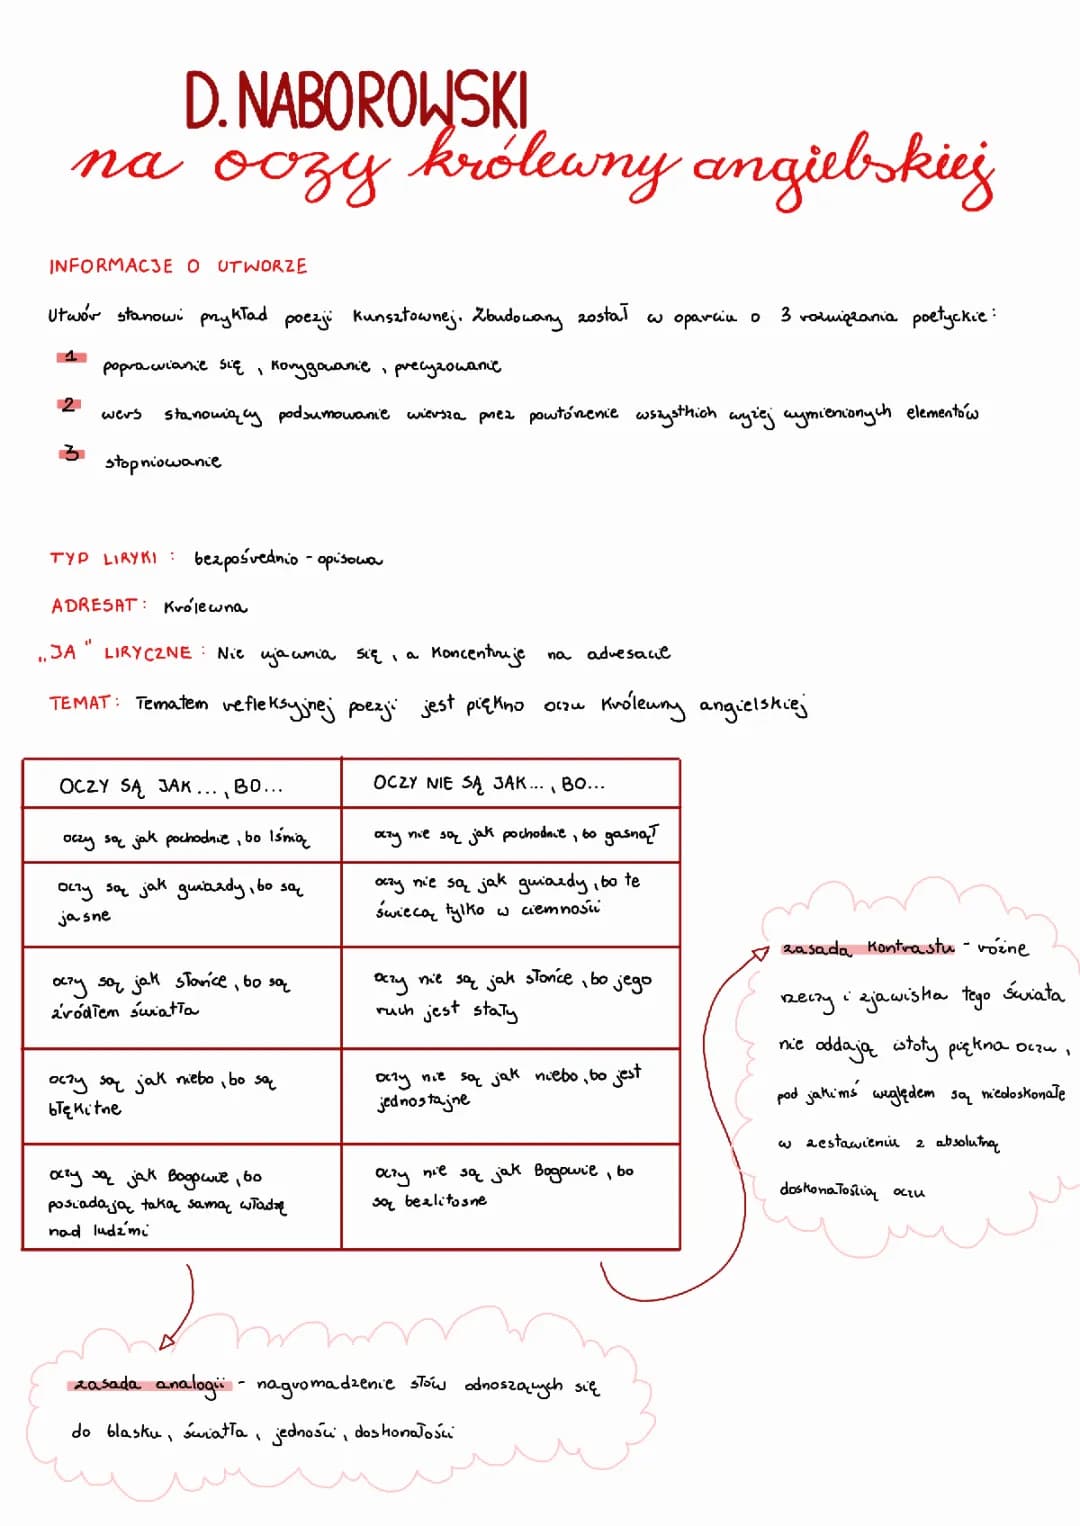 D. NABOROWSKI
na oczy królewny angielskiej
INFORMACJE O UTWORZE
Utwór stanowi przykład poezji kunsztownej. Zbudowany został w oparciu o 3 rozwiązania poetyckie:
1 poprawianie się, korygowanie, precyzowanie
2 wers stanowiący podsumowanie wiersza przez powtórzenie wszystkich wyżej wymienionych elementów
3 stopniowanie
TYP LIRYKI: bezpośrednio - opisowa
ADRESAT: Królewna
„JA" LIRYCZNE: Nie ujawnia się, a koncentruje na adresacie
TEMAT: Tematem refleksyjnej poezji jest piękno oczu Królewny angielskiej
OCZY SĄ JAK ..., BO...
OCZY NIE SĄ JAK..., BO...
oczy są jak pochodnie, bo lśnią
oczy nie są jak pochodnie, bo gasnął
oczy są jak gwiazdy, bo są
jasne
oczy nie są jak gwiazdy, bo te
świecą tylko w ciemności
oczy są jak słońce, bo są
źródłem światła
oczy nie są jak słońce, bo jego
ruch jest stały
oczy są jak niebo, bo są
błękitne
oczy nie są jak niebo, bo jest
jednostajne
oczy są jak Bogowie, bo
posiadają taką samą władzę
nad ludźmi
oczy nie są jak Bogowie, bo
są bezlitosne
zasada kontrastu - różne
rzeczy i zjawiska tego świata
nie oddają istoty piękna oczu,
pod jakimś względem są niedoskonałe
w zestawieniu z absolutną
doskonałością oczu
zasada analogii - nagromadzenie słów odnoszących się
do blasku, światła, jedności, doskonałości